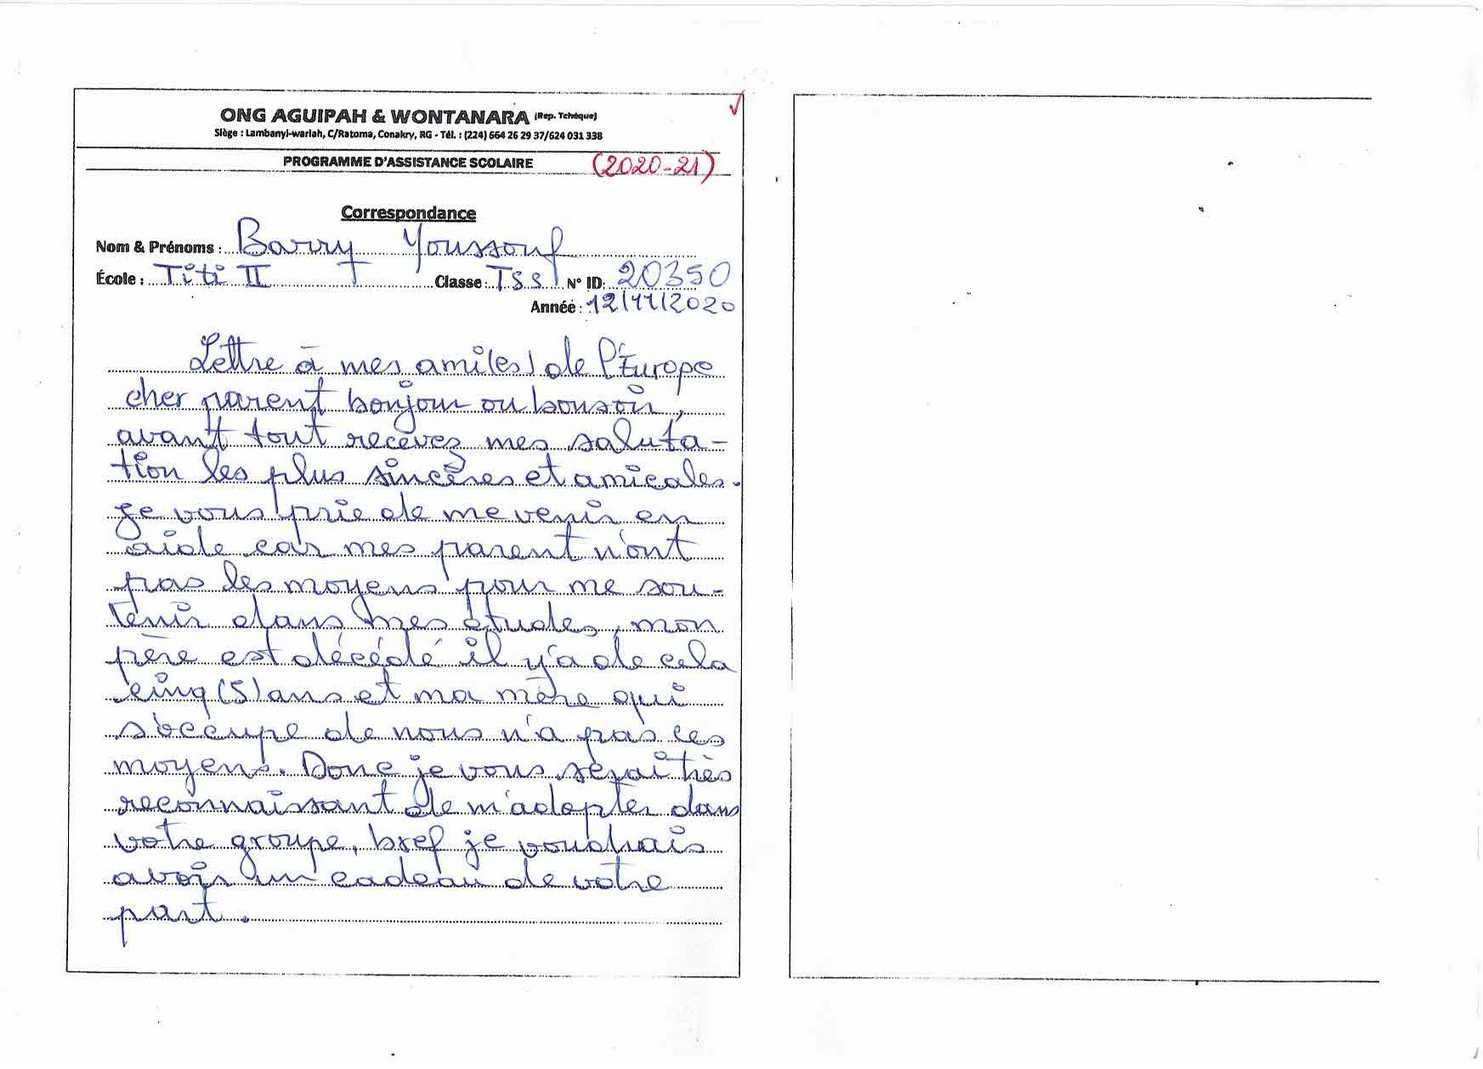 ONG AGUIPAH & WONTANARA (Rep. Tchèque)
Siège : Lambanyi-wariah, C/Ratoma, Conakry, RG - Tél. : (224) 664 26 29 37/624 031 338
PROGRAMME D'ASSISTANCE SCOLAIRE (2020-21)
Correspondance
Nom & Prénoms : Barry Youssouf
École : Titi II Classe : TSS N° ID: 20350
Année : 12/11/2020
Lettre à mes ami(es) de l'Europe
cher parent bonjour ou bonsoir,
avant tout recevez mes saluta-
tion les plus sincères et amicales.
je vous prie de me venir en
aide car mes parent n'ont
pas les moyens pour me sou-
tenir dans mes études, mon
père est décédé il y'a de cela
cinq (5) ans et ma mère qui
s'occupe de nous n'a pas les
moyens. Donc je vous serai très
reconnaissant de m'adopter dans
votre groupe, bref je voudrais
avoir un cadeau de votre
part.